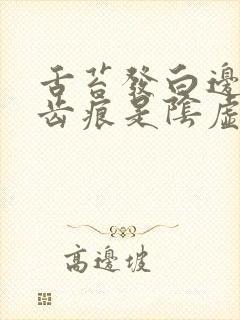 舌苔發白邊
齿痕是陰虛
高邊坡